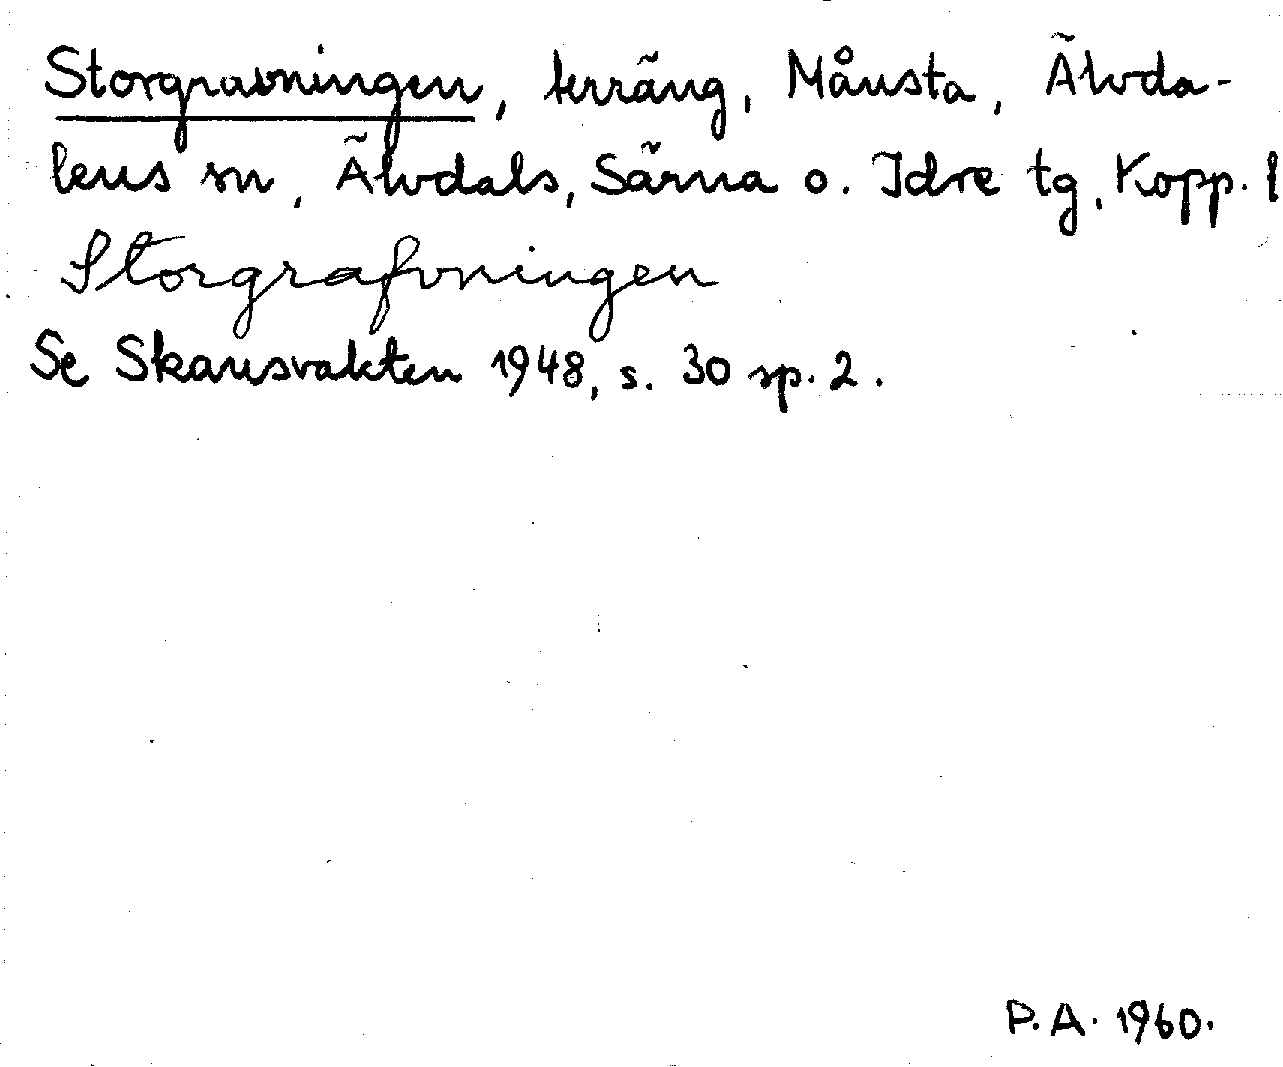 Storgravningen, terräng, Månsta, Älvda-
lens sn, Älvdals, Särna o. Idre tg, Kopp. l
Storgrafvningen
Se Skansvakten 1948, s. 30 sp. 2.
P.A. 1960.